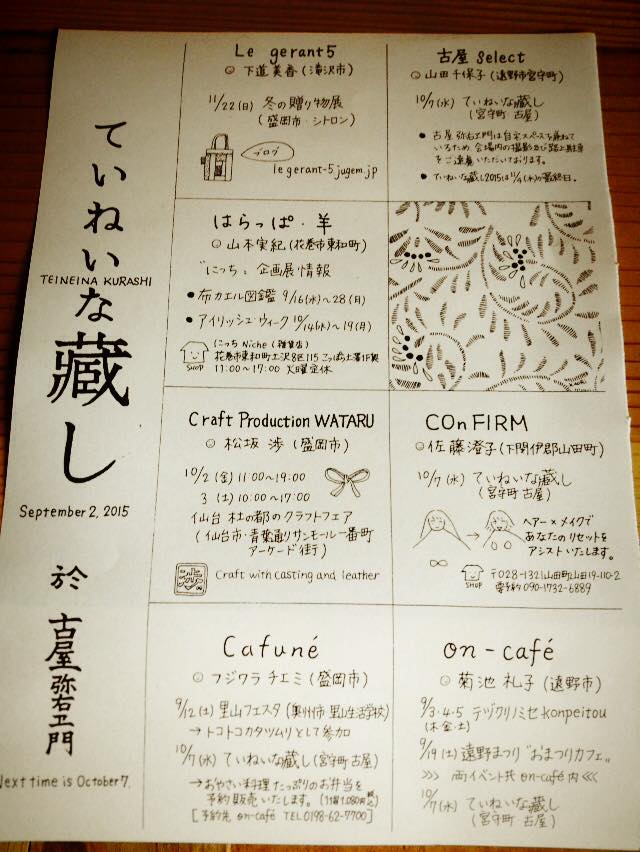 ていねいな蔵し
TEINEINA KURASHI
September 2, 2015
於 古屋弥右エ門
Next time is October 7.
Le gerant5
下道美香(滝沢市)
11/22(日) 冬の贈り物展
(盛岡市・シトロン)
ブログ
le gerant-5.jugem.jp
古屋 Select
山田千保子(遠野市宮守町)
10/7(水) ていねいな蔵し
(宮守町・古屋)
● 古屋弥右エ門は自宅スペースも兼ねて
いるため、会場内の撮影及び路上駐車
をご遠慮いただいております。
● ていねいな蔵し2015は11/4(水)が最終日。
はらっぱ・羊
山本実紀(花巻市東和町)
"にっち"企画展情報
● 布カエル図鑑 9/16(水)~28(月)
● アイリッシュ・ウィーク 10/14(水)~19(月)
SHOP
にっち Niche (雑貨店)
花巻市東和町土沢8区115 こっぽら土澤1F奥
11:00~17:00 火曜定休
Craft Production WATARU
松坂 渉(盛岡市)
10/2(金)11:00~19:00
3(土)10:00~17:00
仙台 杜の都のクラフトフェア
(仙台市・青葉通りサンモール一番町
アーケード街)
渉
Craft with casting and leather
COnFIRM
佐藤澄子(下閉伊郡山田町)
10/7(水) ていねいな蔵し
(宮守町 古屋)
ヘアー×メイクで
あなたのリセットを
アシストいたします。
SHOP
〒028-1321山田町山田19-110-2
090-1732-6889
Cafuné
フジワラ チエミ(盛岡市)
9/12(土) 里山フェスタ(奥州市 里山生活学校)
→トコトコカタツムリとして参加
10/7(水) ていねいな蔵し(宮守町古屋)
→おやさい料理たっぷりのお弁当を
予約販売いたします。(1個1,080円税込)
[予約先 on-café TEL 0198-62-7700]
on-café
菊池 礼子(遠野市)
9/3・4・5 テヅクリノミセ konpeitou
(木・金・土)
9/19(土) 遠野まつり"おまつりカフェ"
>>> 両イベント共 on-café内 <<<
10/7(水) ていねいな蔵し
(宮守町・古屋)